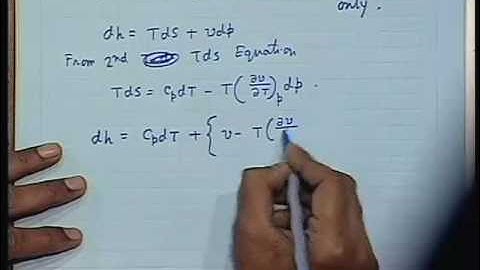 only.
dh = Tds + vdp
From 2nd Tds Equation
Tds = CpdT - T(∂v/∂T)p dp.
dh = CpdT + { v - T(∂v